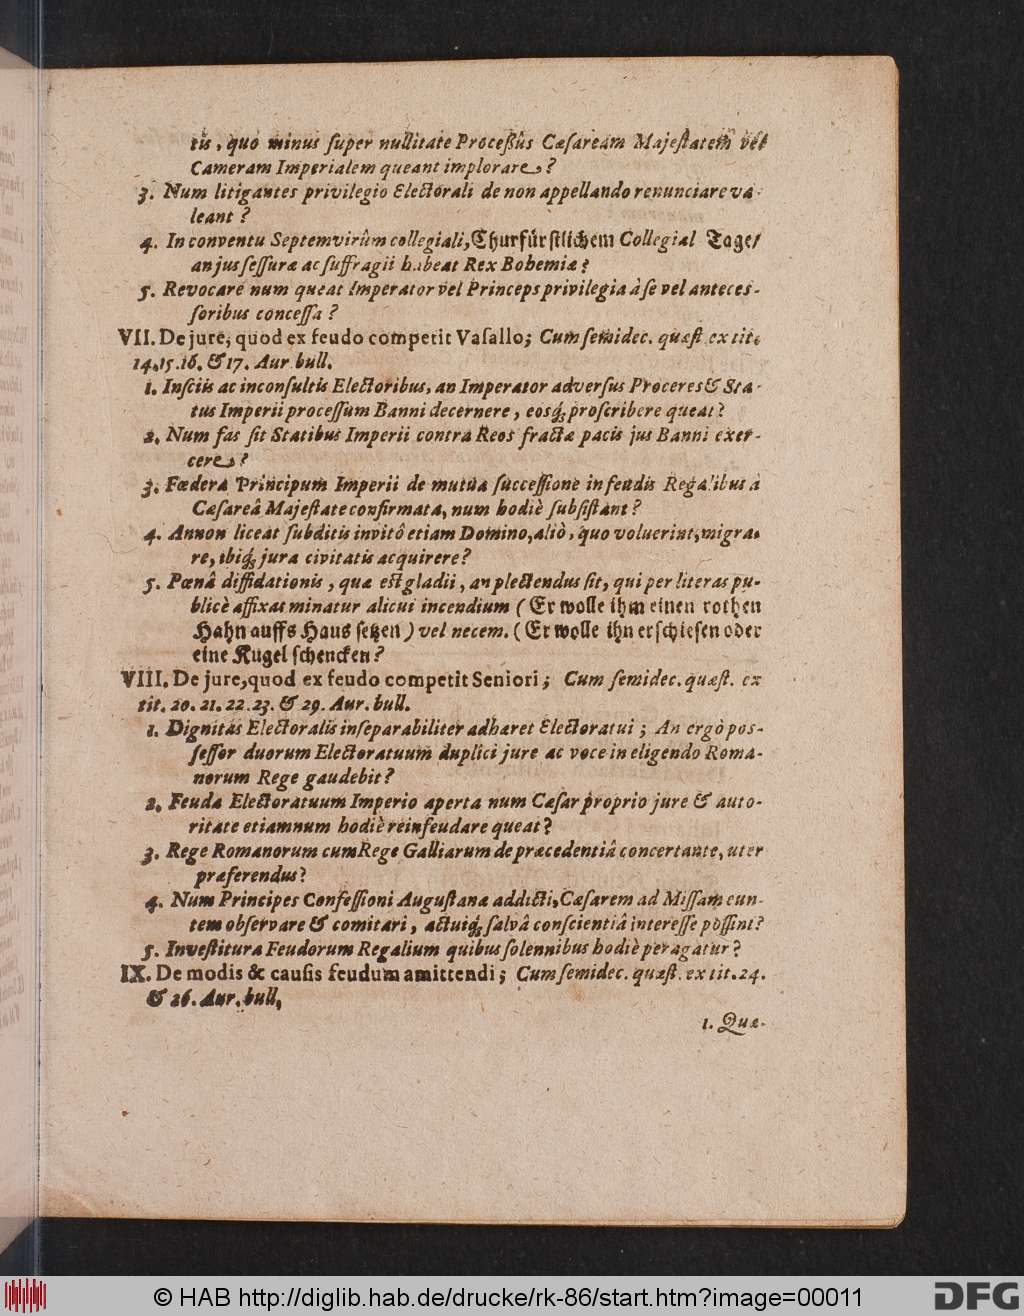 tis, quo minus ſuper nullitate Proceßûs Cæſaream Majeſtatem vel
Cameram Imperialem queant implorare?
3. Num litigantes privilegio Electorali de non appellando renunciare va-
leant?
4. In conventu Septemvirûm collegiali, Churfürſtlichem Collegial Tage/
an jus ſeſſuræ ac ſuffragii habeat Rex Bohemiæ?
5. Revocare num queat Imperator vel Princeps privilegia à ſe vel anteceſ-
ſoribus conceſſa?
VII. De jure, quod ex feudo competit Vaſallo; Cum ſemidec. quæſt. ex tit.
14. 15. 16. & 17. Aur. bull.
1. Inſciis ac inconſultis Electoribus, an Imperator adverſus Proceres & Sta-
tus Imperii proceſſum Banni decernere, eosq; proſcribere queat?
2. Num fas ſit Statibus Imperii contra Reos fractæ pacis jus Banni exer-
cere?
3. Fœdera Principum Imperii de mutua ſucceſſione in feudis Regalibus à
Cæſareâ Majeſtate confirmata, num hodiè ſubſiſtant?
4. Annon liceat ſubditis invitô etiam Domino, aliò, quo voluerint, migra-
re, ibiq; jura civitatis acquirere?
5. Pœnâ diffidationis, quæ eſt gladii, an plectendus ſit, qui per literas pu-
blicè affixas minatur alicui incendium (Er wolle ihm einen rothen
Hahn auffs Haus ſetzen) vel necem. (Er wolle ihn erſchieſen oder
eine Kugel ſchencken?
VIII. De jure, quod ex feudo competit Seniori; Cum ſemidec. quæſt. ex
tit. 20. 21. 22. 23. & 29. Aur. bull.
1. Dignitas Electoralis inſeparabiliter adhæret Electoratui; An ergò poſ-
ſeſſor duorum Electoratuum duplici jure ac voce in eligendo Roma-
norum Rege gaudebit?
2. Feuda Electoratuum Imperio aperta num Cæſar proprio jure & auto-
ritate etiamnum hodiè reinfeudare queat?
3. Rege Romanorum cum Rege Galliarum de præcedentiâ concertante, uter
præferendus?
4. Num Principes Confeſſioni Auguſtanæ addicti, Cæſarem ad Miſſam eun-
tem obſervare & comitari, actuiq; ſalvâ conſcientiâ intereſſe poſſint?
5. Inveſtitura Feudorum Regalium quibus ſolennibus hodiè peragatur?
IX. De modis & cauſis feudum amittendi; Cum ſemidec. quæſt. ex tit. 24.
& 26. Aur. bull.
1. Quæ-
© HAB http://diglib.hab.de/drucke/rk-86/start.htm?image=00011
DFG